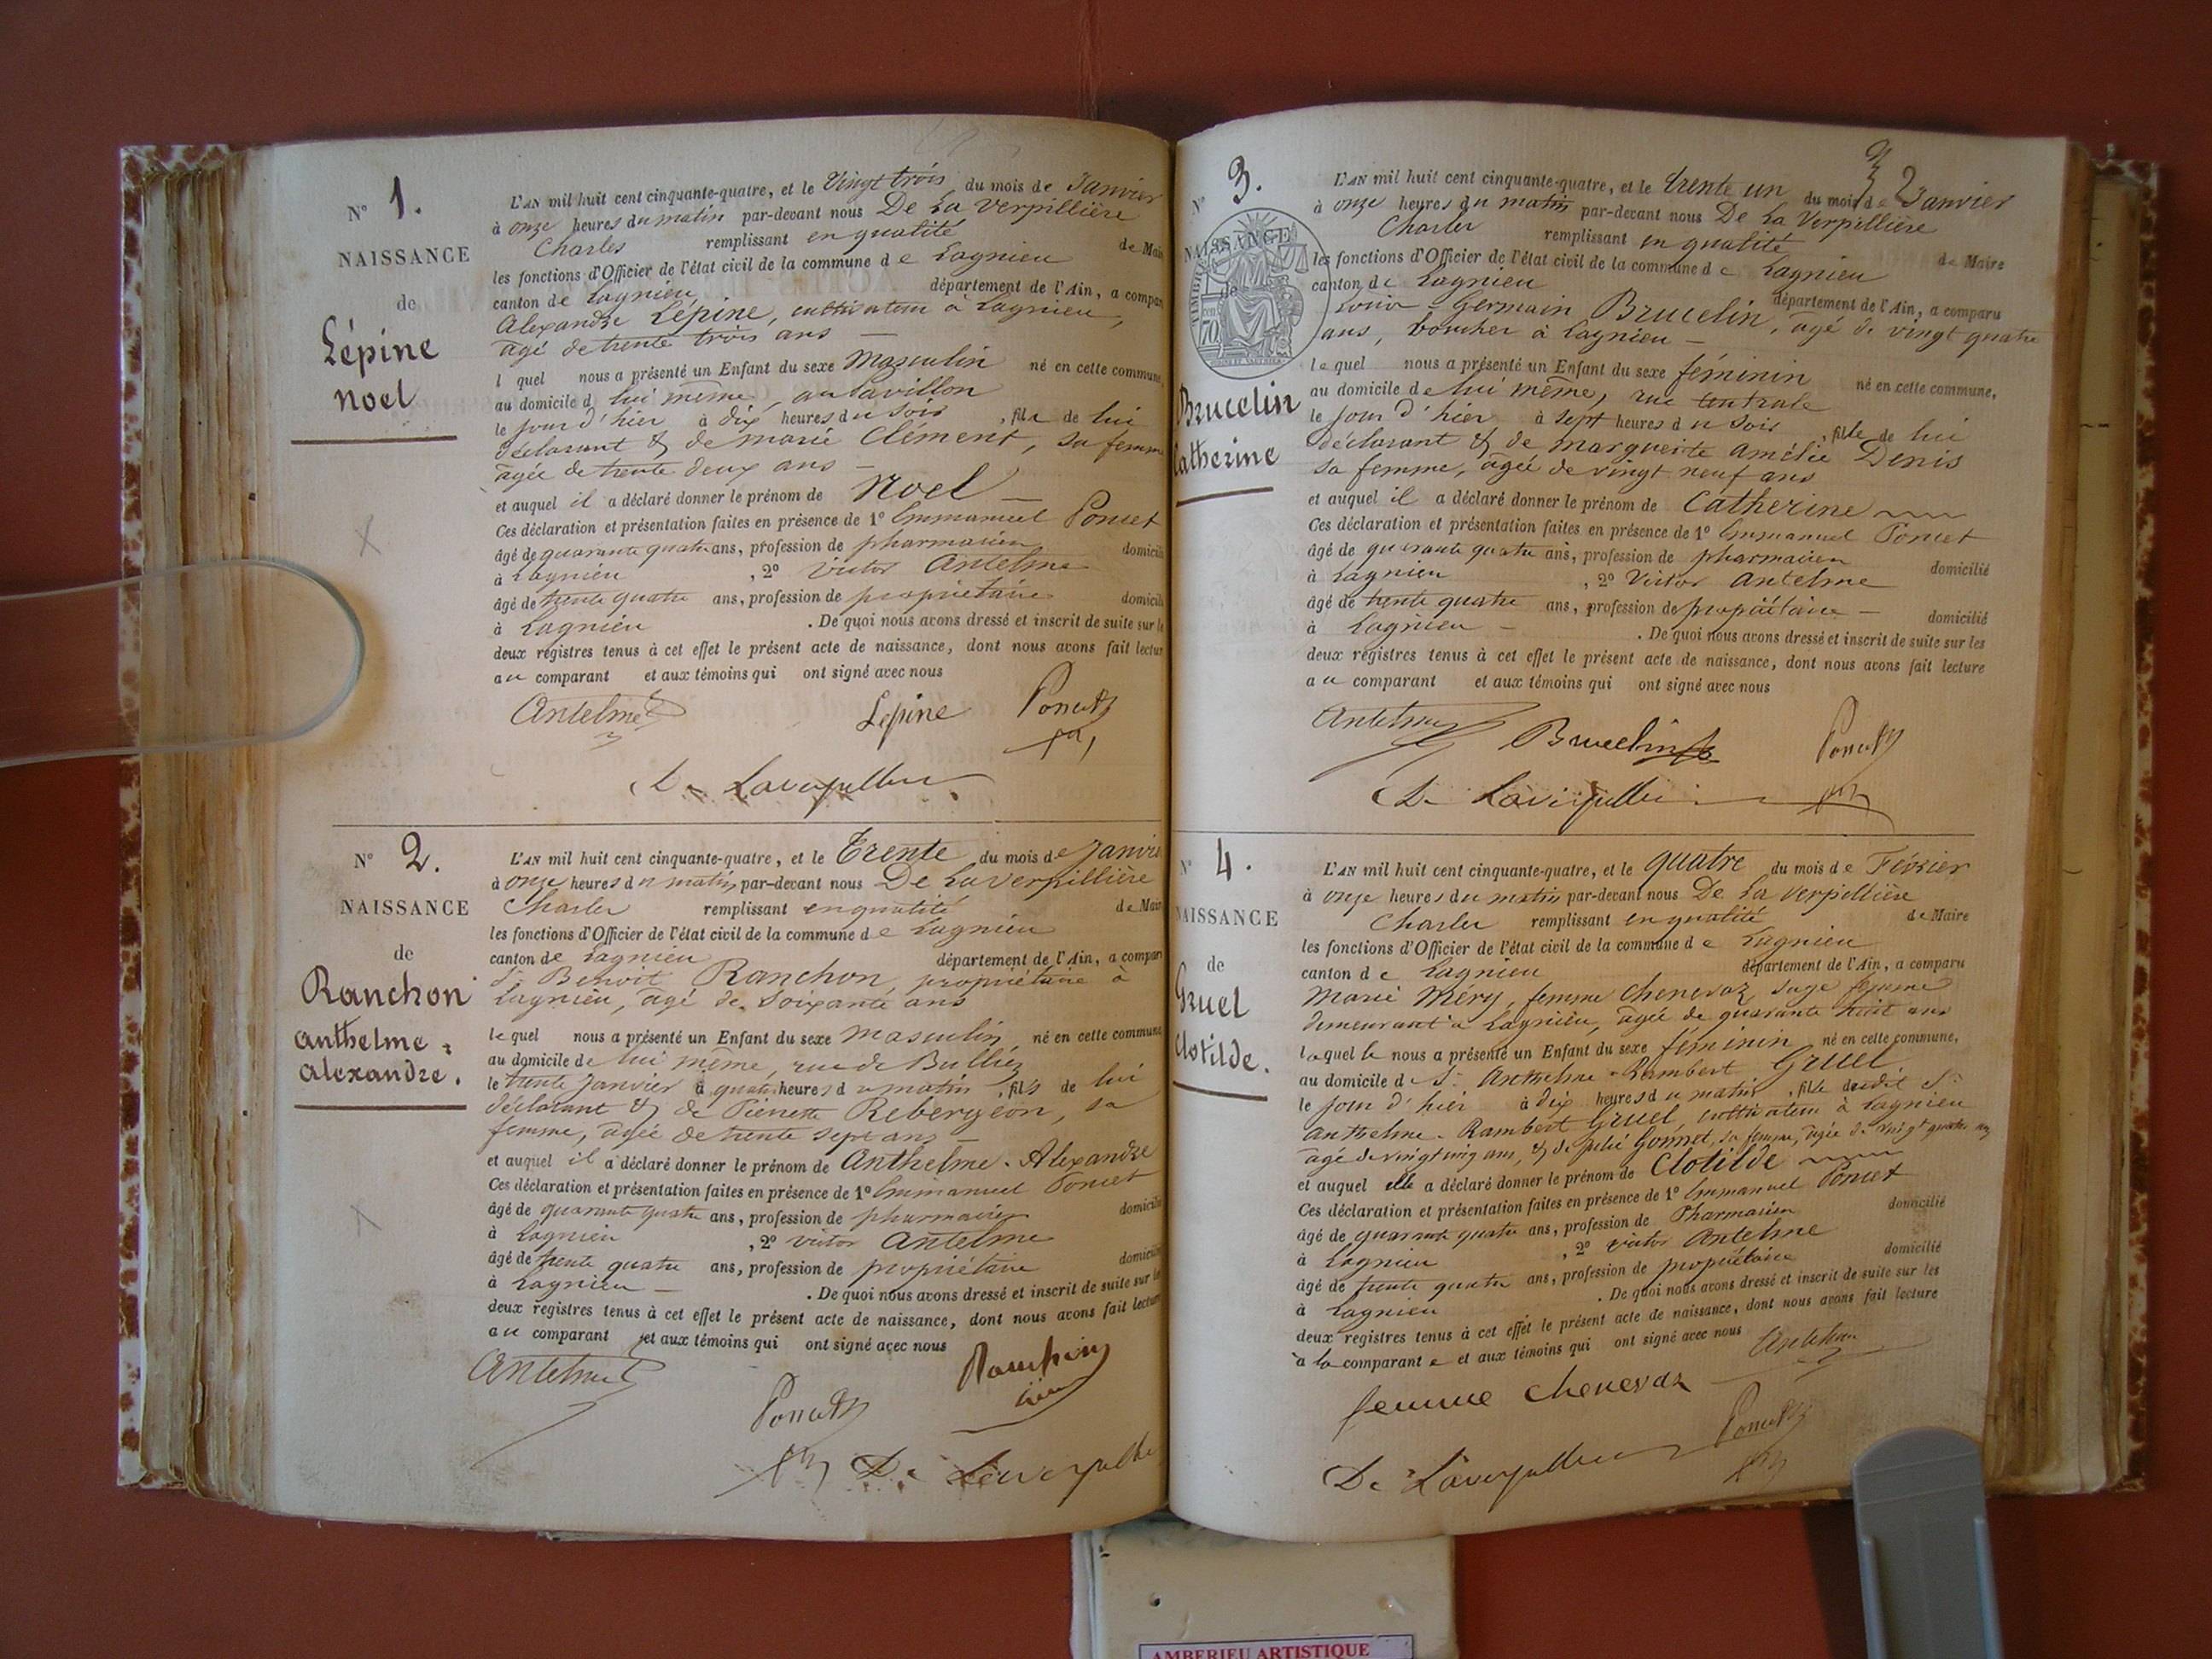 N° 1.
NAISSANCE
de
Lépine
Noel
L'AN mil huit cent cinquante-quatre, et le Vingt trois du mois de Janvier
à onze heures du matin par-devant nous De La Verpillière
Charles remplissant en qualité de Mair
les fonctions d'Officier de l'état civil de la commune de Lagnieu
canton de Lagnieu département de l'Ain, a compar
Alexandre Lépine, cultivateur à Lagnieu,
âgé de trente trois ans —
l quel nous a présenté un Enfant du sexe Masculin né en cette commune,
au domicile d lui même, au Pavillon
le jour d'hier à dix heures du soir, fils de lui
déclarant & de marie Clément, sa femme
âgée de trente deux ans —
et auquel il a déclaré donner le prénom de Noel —
Ces déclaration et présentation faites en présence de 1° Emmanuel Poncet
âgé de quarante quatre ans, profession de pharmacien domicili
à Lagnieu , 2° Victor Antelme
âgé de trente quatre ans, profession de propriétaire domicili
à Lagnieu . De quoi nous avons dressé et inscrit de suite sur le
deux registres tenus à cet effet le présent acte de naissance, dont nous avons fait lectur
au comparant et aux témoins qui ont signé avec nous
Antelme Lépine Poncet
De Laverpillière
N° 2.
NAISSANCE
de
Ranchon
anthelme =
alexandre.
L'AN mil huit cent cinquante-quatre, et le Trente du mois de Janvie
à onze heures du matin par-devant nous De La Verpillière
Charles remplissant en qualité de Mair
les fonctions d'Officier de l'état civil de la commune de Lagnieu
canton de Lagnieu département de l'Ain, a compar
Sr Benoit Ranchon, propriétaire à
Lagnieu, âgé de soixante ans
le quel nous a présenté un Enfant du sexe masculin né en cette commune
au domicile de lui même, rue de Bulliez
le trente Janvier à quatre heures du matin, fils de lui
déclarant & de Pierrette Rebergeon, sa
femme, âgée de trente sept ans —
et auquel il a déclaré donner le prénom de Anthelme - Alexandre
Ces déclaration et présentation faites en présence de 1° Emmanuel Poncet
âgé de quarante quatre ans, profession de pharmacien domicilié
à Lagnieu , 2° Victor Antelme
âgé de trente quatre ans, profession de propriétaire domicilié
à Lagnieu — . De quoi nous avons dressé et inscrit de suite sur le
deux registres tenus à cet effet le présent acte de naissance, dont nous avons fait lecture
au comparant et aux témoins qui ont signé avec nous
Antelme Poncet Ranchon
De Laverpillière
N° 3.
NAISSANCE
de
Brucelin
Catherine
L'AN mil huit cent cinquante-quatre, et le trente un du mois de Janvier
à onze heures du matin par-devant nous De La Verpillière
Charles remplissant en qualité de Maire
les fonctions d'Officier de l'état civil de la commune de Lagnieu
canton de Lagnieu département de l'Ain, a comparu
Louis Germain Brucelin, âgé de vingt quatre
ans, boucher à Lagnieu —
le quel nous a présenté un Enfant du sexe féminin né en cette commune,
au domicile de lui même, rue centrale
le jour d'hier à sept heures du soir, fille de lui
déclarant & de marguerite amélie Denis
sa femme, âgée de vingt neuf ans
et auquel il a déclaré donner le prénom de Catherine
Ces déclaration et présentation faites en présence de 1° Emmanuel Poncet
âgé de quarante quatre ans, profession de pharmacien domicilié
à Lagnieu , 2° Victor Antelme
âgé de trente quatre ans, profession de propriétaire — domicilié
à Lagnieu — . De quoi nous avons dressé et inscrit de suite sur les
deux registres tenus à cet effet le présent acte de naissance, dont nous avons fait lecture
au comparant et aux témoins qui ont signé avec nous
Antelme Brucelin Poncet
De Laverpillière
N° 4.
NAISSANCE
de
Gruel
Clotilde.
L'AN mil huit cent cinquante-quatre, et le quatre du mois de Février
à onze heures du matin par-devant nous De La Verpillière
Charles remplissant en qualité de Maire
les fonctions d'Officier de l'état civil de la commune de Lagnieu
canton de Lagnieu département de l'Ain, a comparu
Marie Méry, femme Chenevaz, sage femme
demeurant à Lagnieu, âgée de quarante huit ans
laquelle nous a présenté un Enfant du sexe féminin né en cette commune,
au domicile d Sr Anthelme - Rambert Gruel
le jour d'hier à dix heures du matin, fille dudit Sr
Anthelme - Rambert Gruel, cultivateur à Lagnieu
âgé de vingt cinq ans, & de Julie Gonnet, sa femme, âgée de vingt quatre ans
et auquel elle a déclaré donner le prénom de Clotilde
Ces déclaration et présentation faites en présence de 1° Emmanuel Poncet
âgé de quarante quatre ans, profession de Pharmacien domicilié
à Lagnieu , 2° victor Antelme
âgé de trente quatre ans, profession de propriétaire domicilié
à Lagnieu . De quoi nous avons dressé et inscrit de suite sur les
deux registres tenus à cet effet le présent acte de naissance, dont nous avons fait lecture
à la comparante et aux témoins qui ont signé avec nous
Antelme
femme Chenevaz
Poncet
De Laverpillière
AMBERIEU ARTISTIQUE